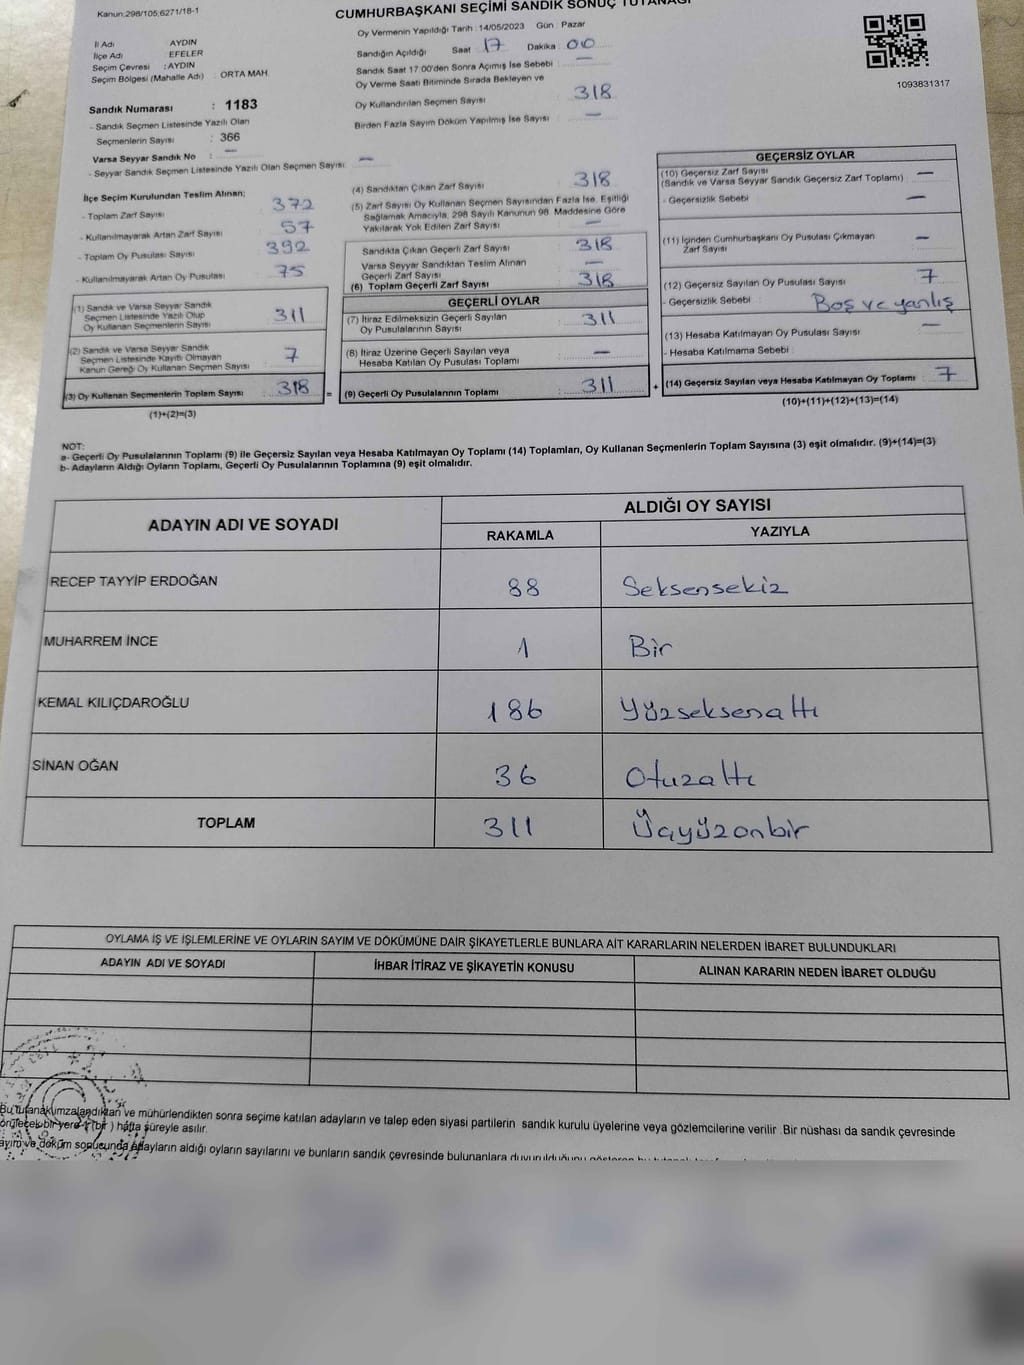 Kanun:298/105;6271/18-1
CUMHURBAŞKANI SEÇİMİ SANDIK SONUÇ TUTANAĞI
İl Adı AYDIN
İlçe Adı EFELER
Seçim Çevresi : AYDIN
Seçim Bölgesi (Mahalle Adı) : ORTA MAH.
Sandık Numarası : 1183
- Sandık Seçmen Listesinde Yazılı Olan
Seçmenlerin Sayısı : 366
Varsa Seyyar Sandık No : —
- Seyyar Sandık Seçmen Listesinde Yazılı Olan Seçmen Sayısı : —
Oy Vermenin Yapıldığı Tarih : 14/05/2023 Gün : Pazar
Sandığın Açıldığı Saat 17 Dakika : 00
Sandık Saat 17:00'den Sonra Açımış İse Sebebi : —
Oy Verme Saati Bitiminde Sırada Bekleyen ve
Oy Kullandırılan Seçmen Sayısı : 318
Birden Fazla Sayım Döküm Yapılmış İse Sayısı : —
1093831317
İlçe Seçim Kurulundan Teslim Alınan;
- Toplam Zarf Sayısı : 372
- Kullanılmayarak Artan Zarf Sayısı : 57
- Toplam Oy Pusulası Sayısı : 392
- Kullanılmayarak Artan Oy Pusulası : 75
(1) Sandık ve Varsa Seyyar Sandık
Seçmen Listesinde Yazılı Olup
Oy Kullanan Seçmenlerin Sayısı : 311
(2) Sandık ve Varsa Seyyar Sandık
Seçmen Listesinde Kayıtlı Olmayan
Kanun Gereği Oy Kullanan Seçmen Sayısı : 7
(3) Oy Kullanan Seçmenlerin Toplam Sayısı : 318
(1)+(2)=(3)
(4) Sandıktan Çıkan Zarf Sayısı : 318
(5) Zarf Sayısı Oy Kullanan Seçmen Sayısından Fazla İse, Eşitliği
Sağlamak Amacıyla, 298 Sayılı Kanunun 98. Maddesine Göre
Yakılarak Yok Edilen Zarf Sayısı : —
Sandıkta Çıkan Geçerli Zarf Sayısı : 318
Varsa Seyyar Sandıktan Teslim Alınan
Geçerli Zarf Sayısı : —
(6) Toplam Geçerli Zarf Sayısı : 318
GEÇERLİ OYLAR
(7) İtiraz Edilmeksizin Geçerli Sayılan
Oy Pusulalarının Sayısı : 311
(8) İtiraz Üzerine Geçerli Sayılan veya
Hesaba Katılan Oy Pusulası Toplamı : —
= (9) Geçerli Oy Pusulalarının Toplamı : 311
GEÇERSİZ OYLAR
(10) Geçersiz Zarf Sayısı
(Sandık ve Varsa Seyyar Sandık Geçersiz Zarf Toplamı) : —
- Geçersizlik Sebebi —
(11) İçinden Cumhurbaşkanı Oy Pusulası Çıkmayan
Zarf Sayısı : —
(12) Geçersiz Sayılan Oy Pusulası Sayısı : 7
- Geçersizlik Sebebi Boş ve yanlış
(13) Hesaba Katılmayan Oy Pusulası Sayısı : —
- Hesaba Katılmama Sebebi :
+ (14) Geçersiz Sayılan veya Hesaba Katılmayan Oy Toplamı : 7
(10)+(11)+(12)+(13)=(14)
NOT:
a- Geçerli Oy Pusulalarının Toplamı (9) ile Geçersiz Sayılan veya Hesaba Katılmayan Oy Toplamı (14) Toplamları, Oy Kullanan Seçmenlerin Toplam Sayısına (3) eşit olmalıdır. (9)+(14)=(3)
b- Adayların Aldığı Oyların Toplamı, Geçerli Oy Pusulalarının Toplamına (9) eşit olmalıdır.
ADAYIN ADI VE SOYADI ALDIĞI OY SAYISI
RAKAMLA YAZIYLA
RECEP TAYYİP ERDOĞAN 88 Seksensekiz
MUHARREM İNCE 1 Bir
KEMAL KILIÇDAROĞLU 186 Yüzseksenaltı
SİNAN OĞAN 36 Otuzaltı
TOPLAM 311 Üçyüzonbir
OYLAMA İŞ VE İŞLEMLERİNE VE OYLARIN SAYIM VE DÖKÜMÜNE DAİR ŞİKAYETLERLE BUNLARA AİT KARARLARIN NELERDEN İBARET BULUNDUKLARI
ADAYIN ADI VE SOYADI İHBAR İTİRAZ VE ŞİKAYETİN KONUSU ALINAN KARARIN NEDEN İBARET OLDUĞU
Bu tutanak imzalandıktan ve mühürlendikten sonra seçime katılan adayların ve talep eden siyasi partilerin sandık kurulu üyelerine veya gözlemcilerine verilir. Bir nüshası da sandık çevresinde
görülecek bir yere 1 (bir) hafta süreyle asılır.
döküm sonucunda adayların aldığı oyların sayılarını ve bunların sandık çevresinde bulunanlara duyurulduğunu